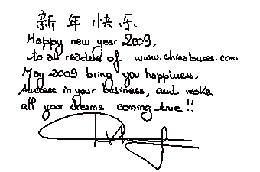 新年快乐
Happy new year 2009,
to all readers of www.chinabuses.com
May 2009 bring you happiness,
success in your business, and make
all your dreams coming true !!